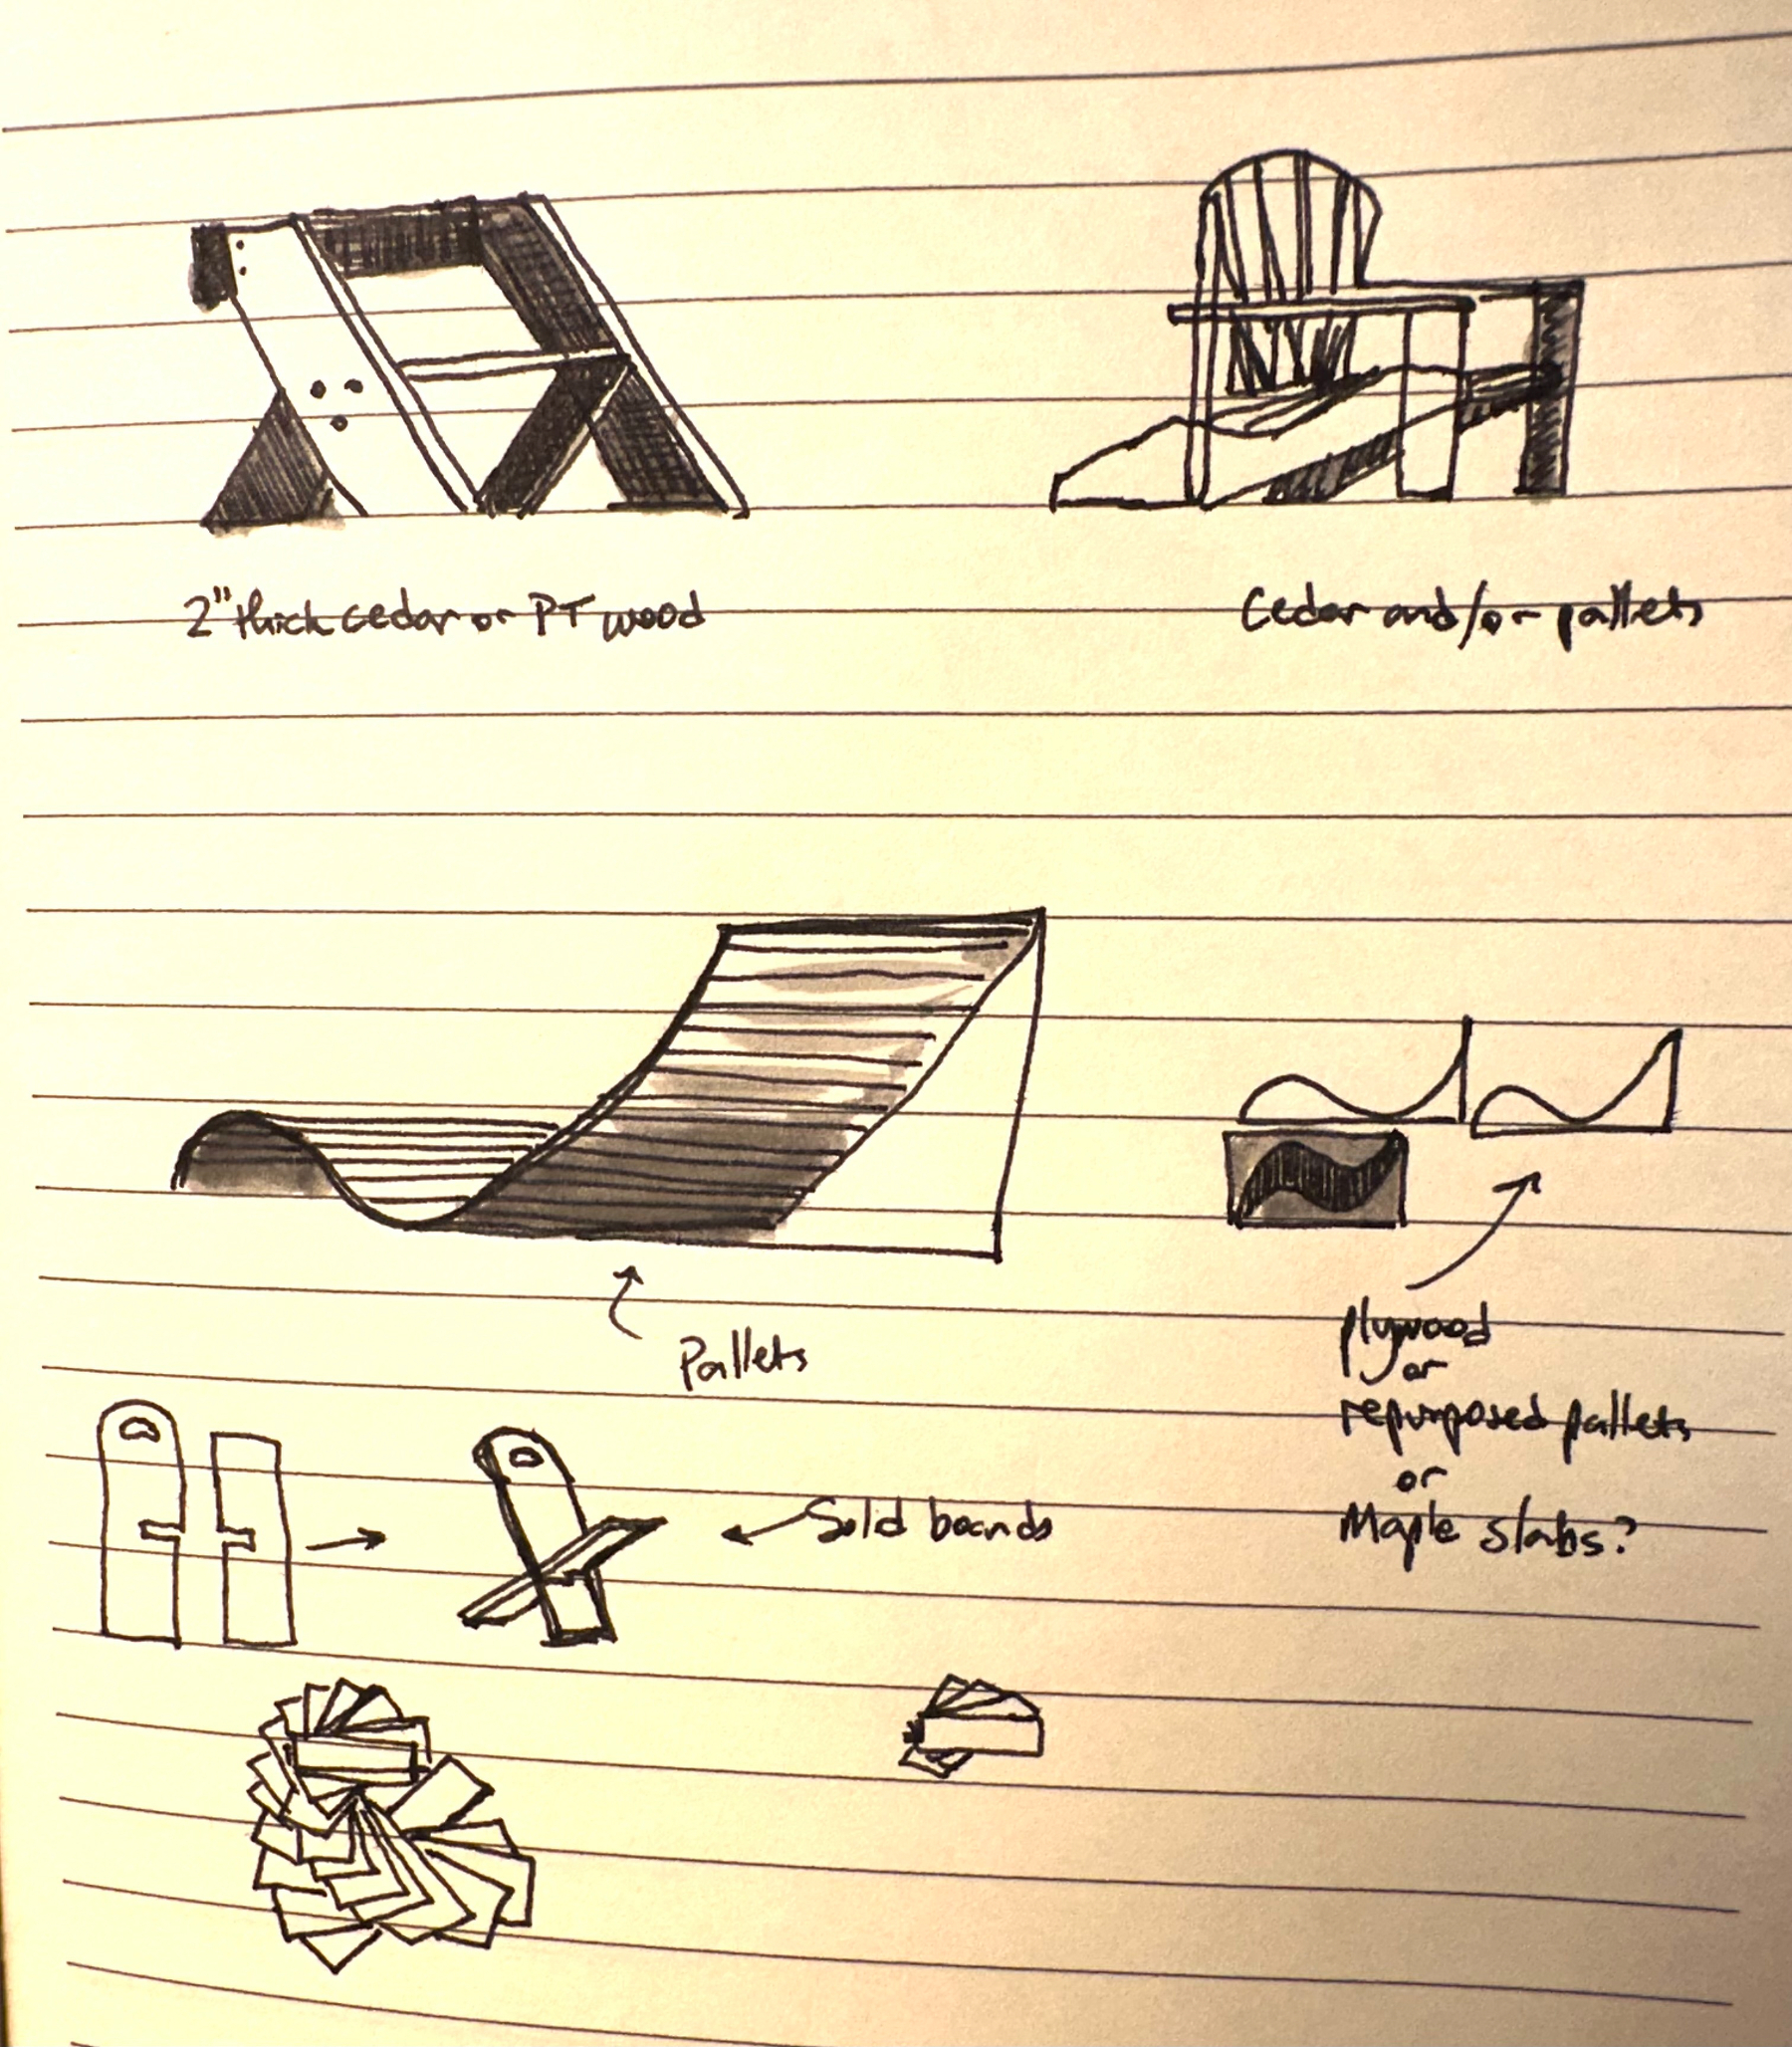 2" thick cedar or PT wood
Cedar and/or pallets
Pallets
plywood
or
repurposed pallets
or
Maple slabs?
Solid boards